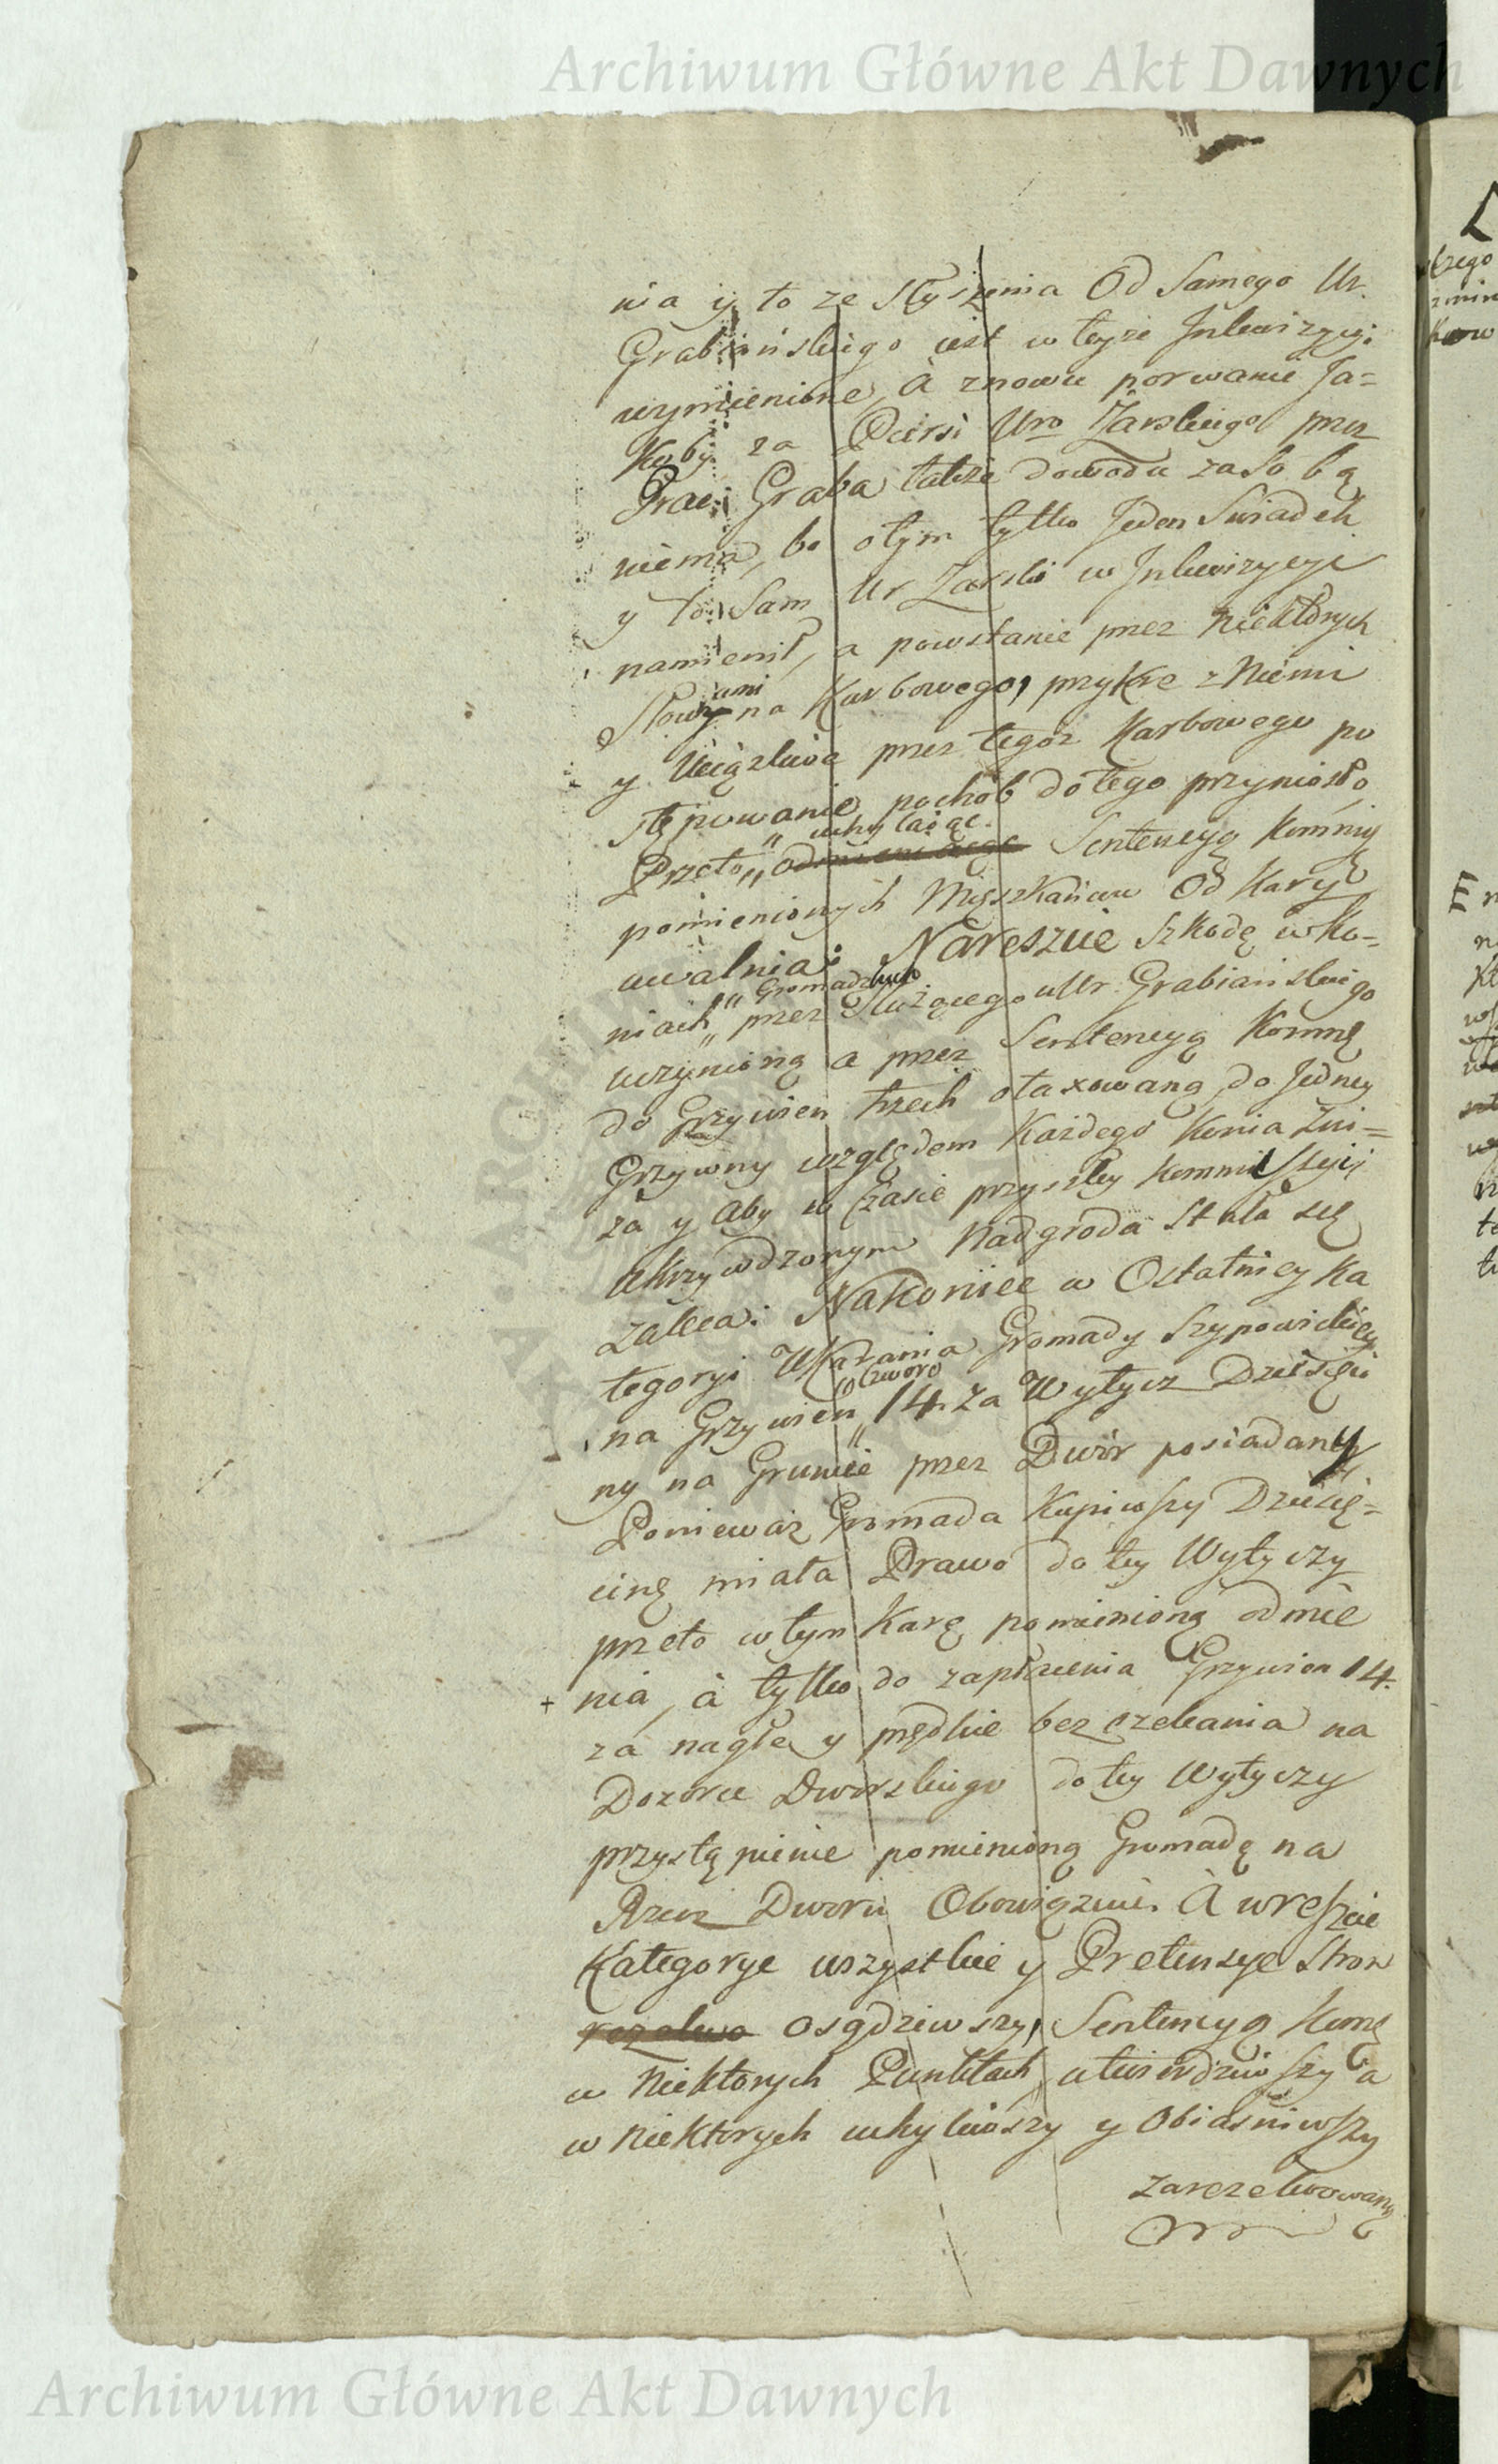 Archiwum Główne Akt Dawnych
nia y to ze słyszenia Od Samego Ur.
Grabiańskiego iest w teyże Inkwizycyi
wymienione, à znowu porwanie Ja=
koby za Piersi Uro Zarskiego przez
Prac: Graba także dowodu za sobą
niema, bo o tym tylko Jeden Swiadek
y to Sam Ur Zarski w Inkwizycyi
namienił, a powstanie przez Niektórych
Słowy ami na Karbowego, przykre z Niemi
y Uciążliwe przez tegoż Karbowego po
stępowanie pochób do tego przyniosło
uchylaiąc
Przeto „ Sentencyą Kommną
pomienionych Mięszkańców Od Kary
uwalnia: Nareszcie Szkodę w Ko=
„ Gromadzkich
niach „ przez Służącego u Ur Grabianskiego
uczynioną a przez Sentencyą Kommą
do Grzywien trzech otaxowaną do Jedney
Grzywny względem Każdego Konia Zni=
ża y aby w Czasie przyszłey Kommissyi
ukrzywdzonym Nadgroda Stała się
zaleca: Nakoniec w Ostatniey Ka
tegoryi Ukarania Gromady Szypowickiey
w czworo
na Grzywien „ 14. Za Wytycz Dziesięci
ny na Gruncie przez Dwór posiadany
Ponieważ Gromada Kupiwszy Dziesię=
cinę miała Prawo do tey Wytyczy
przeto w tym Karę pomienioną odmie
+ nia, à tylko do zapłacenia Grzywien 14.
za nagłe y prędkie bez czekania na
Dozorcę Dworskiego do tey Wytyczy
przystąpienie pomienioną Gromadę na
Rzecz Dworu Obowiązuie. À wreszcie
Kategorye wszystkie y Pretensye Stron
osądziwszy, Sentencyą Komą
w Niektorych Punktach utwierdziwszy a
w Niektorych uchyliwszy y Obiasniwszy
Archiwum Główne Akt Dawnych